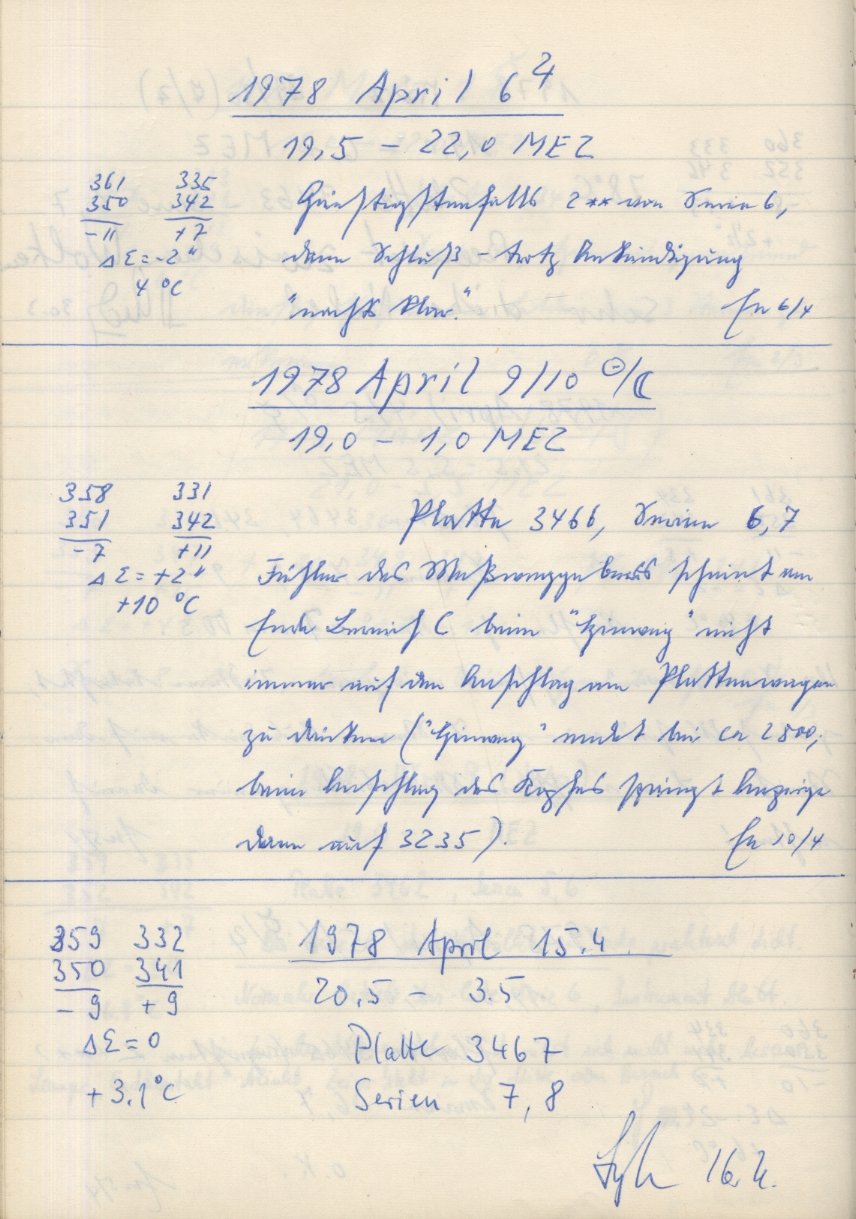 1978 April 6 ♃
19,5 – 22,0 MEZ
361 335
350 342
-11 +7
ΔΣ = -2"
4 °C
Günstigstenfalls 2** von Serie 6,
dann Schluß – trotz Ankündigung
"nachts klar."
En 6/4
1978 April 9/10 ☉/☾
19,0 – 1,0 MEZ
358 331
351 342
-7 +11
ΔΣ = +2"
+10 °C
Platte 3466, Serien 6, 7
Fühler des Meßweggebers scheint am
Ende Bereich C beim "Hinweg" nicht
immer auf den Anschlag am Plattenwagen
zu drücken ("Hinweg" endet bei ca 2800;
beim Anschlag des Kopfes springt Anzeige
dann auf 3235).
En 10/4
359 332
350 341
-9 +9
ΔΣ = 0
+3.1°C
1978 April 15.4.
20.5 – 3.5
Platte 3467
Serien 7, 8
16.4.